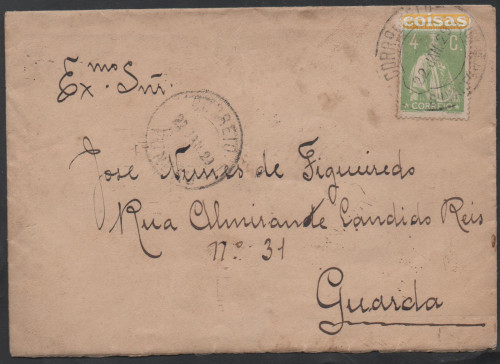 coisas
4 C.
CORREIO
Exmo. Snr.
CORREIO
José Nunes de Figueiredo
Rua Almirande Candido Reis
nº 31
Guarda